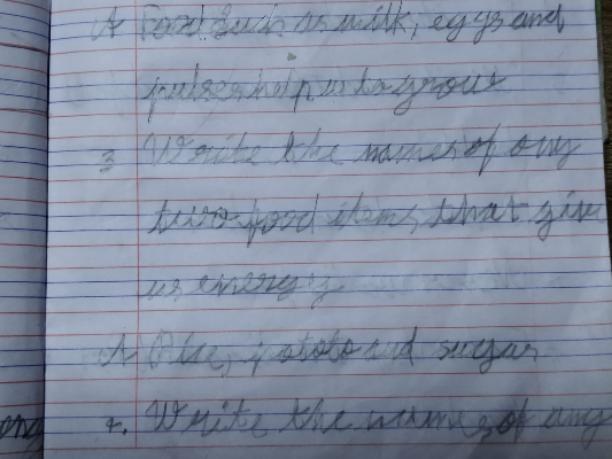 A Food such as milk, eggs and
pulses help us to grow
3 Write the names of any
two food items that give
us energy
A Rice, pototo and sugar
4. Write the names of any